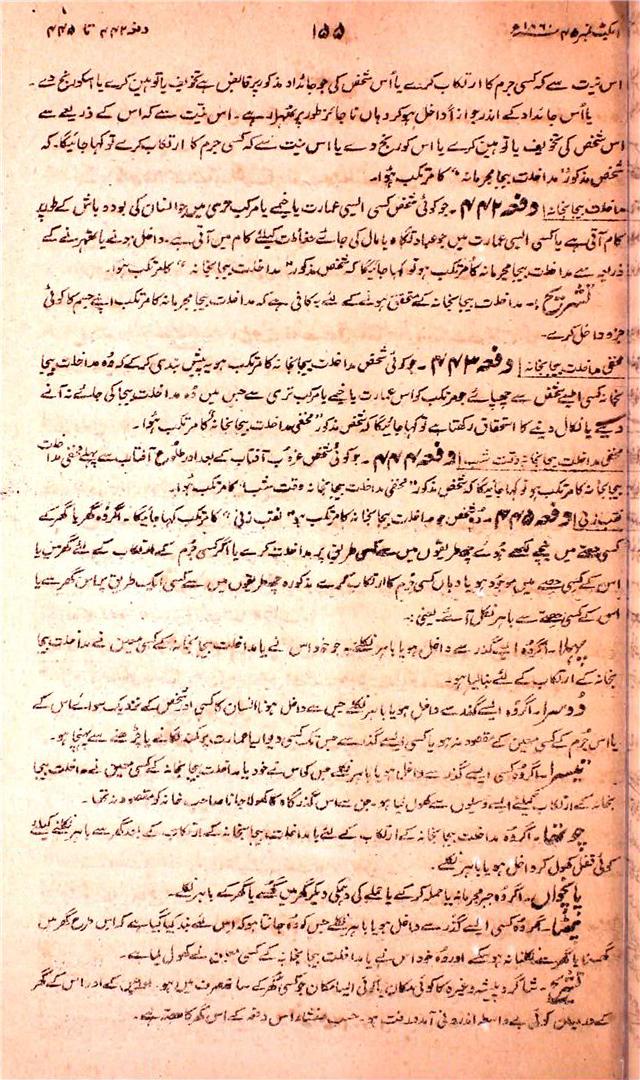 ایکٹ نمبر ۴۵، ۱۸۶۰ء ۱۵۵ دفعہ ۴۴۲ تا ۴۴۵
اس نیت سے کہ کسی جرم کا ارتکاب کرے یا اُس شخص کی جو جائداد مذکور پر قابض ہے تخویف یا توہین کرے یا اسکو رنج دے۔
یا اُس جائداد کے اندر جوازاً داخل ہو کر وہاں ناجائز طور پر ٹھہرا رہے۔ اس نیت سے کہ اس کے ذریعے سے
اس شخص کی تخویف یا توہین کرے یا اس کو رنج دے یا اس نیت سے کہ کسی جرم کا ارتکاب کرے تو کہا جائیگا۔ کہ
شخص مذکور "مداخلت بیجا مجرمانہ" کا مرتکب ہوا۔
مداخلت بیجا بخانہ دفعہ ۴۴۲۔ جو کوئی شخص کسی ایسی عمارت یا خیمے یا مرکب تری میں جو انسان کی بود و باش کے طور پر
کام آتی ہے یا کسی ایسی عمارت میں جو عبادتگاہ یا مال کی جائے حفاظت کیلئے کام میں آتی ہے۔ داخل ہونے یا ٹھہرنے کے
ذریعہ سے مداخلت بیجا مجرمانہ کا مرتکب ہو تو کہا جائیگا کہ شخص مذکور "مداخلت بیجا بخانہ" کا مرتکب ہوا۔
تشریح:۔ مداخلت بیجا بخانہ کے متحقق ہونے کے لئے یہ کافی ہے کہ مداخلت بیجا مجرمانہ کا مرتکب اپنے جسم کا کوئی
جزو داخل کرے۔
مخفی مداخلت بیجا بخانہ دفعہ ۴۴۳۔ جو کوئی شخص مداخلت بیجا بخانہ کا مرتکب ہو یہ پیش بندی کر کے کہ وُہ مداخلت بیجا
بخانہ کسی ایسے شخص سے چھپائے جو مرتکب کو اس عمارت یا خیمے یا مرکب تری سے جس میں وُہ مداخلت بیجا کی جائے نہ آنے
دینے یا نکال دینے کا استحقاق رکھتا ہے تو کہا جائیگا کہ شخص مذکور "مخفی مداخلت بیجا بخانہ" کا مرتکب ہوا۔
مخفی مداخلت بیجا بخانہ وقت شب دفعہ ۴۴۴۔ جو کوئی شخص غروب آفتاب کے بعد اور طلوع آفتاب سے پہلے مخفی مداخلت
بیجا بخانہ کا مرتکب ہو تو کہا جائیگا کہ شخص مذکور "مخفی مداخلت بیجا بخانہ وقت شب" کا مرتکب ہوا۔
نقب زنی دفعہ ۴۴۵۔ وُہ شخص جو مداخلت بیجا بخانہ کا مرتکب ہو "نقب زنی" کا مرتکب کہا جائیگا۔ اگر وُہ گھر یا گھر کے
کسی حصے میں نیچے لکھے ہوئے چھ طریقوں میں سے کسی طریق پر مداخلت کرے یا اگر کسی جُرم کے ارتکاب کے لئے گھر میں یا
اس کے کسی حصے میں موجود ہو یا وہاں کسی جُرم کا ارتکاب کر کے مذکورہ چھ طریقوں میں سے کسی ایک طریق پر اس گھر سے یا
اس کے کسی حصے سے باہر نکل آئے۔ یعنی:۔
پہلا۔ اگر وُہ ایسے گذر سے داخل ہو یا باہر نکلے جو خود اس نے یا مداخلت بیجا بخانہ کے کسی معین نے مداخلت بیجا
بخانہ کے ارتکاب کے لئے بنا لیا ہو۔
دُوسرا۔ اگر وُہ ایسے گذر سے داخل ہو یا باہر نکلے جس سے داخل ہونا انسان کا کسی اور شخص کے نزدیک سوائے اس کے
یا اس جُرم کے کسی معین کے مقصود نہ ہو یا کسی ایسے گذر سے جس تک کسی دیوار یا عمارت پر کمند لگانے یا چڑھنے سے پہنچا ہو۔
تیسرا۔ اگر وُہ کسی ایسے گذر سے داخل ہو یا باہر نکلے جس کو اس نے خود یا مداخلت بیجا بخانہ کے کسی معین نے مداخلت بیجا
بخانہ کے ارتکاب کیلئے ایسے وسیلوں سے کھول لیا ہو۔ جن سے اس گذرگاہ کا کھولا جانا صاحب خانہ کو مقصود نہ تھا۔
چوتھا۔ اگر وُہ مداخلت بیجا بخانہ کے ارتکاب کے لئے یا مداخلت بیجا بخانہ کے ارتکاب کے بعد گھر سے باہر نکلنے کیلئے
کوئی قفل کھول کر داخل ہو یا باہر نکلے۔
پانچواں۔ اگر وُہ جبر مجرمانہ یا حملہ کر کے یا حملے کی دھمکی دیکر گھر میں گھسے یا گھر کے باہر نکلے۔
چھٹا۔ اگر وُہ کسی ایسے گذر سے داخل ہو یا باہر نکلے جس کو وُہ جانتا ہو کہ اس لئے بند کیا گیا ہے کہ اس طرح گھر میں
گھسنا یا گھر سے نکلنا نہ ہو سکے اور وُہ خود اس نے یا مداخلت بیجا بخانہ کے کسی معین نے کھول لیا ہے۔
تشریح۔ شاگرد پیشہ وغیرہ کا کوئی مکان یا کوئی ایسا مکان جو کسی گھر کے ساتھ تصرف میں ہو اور اس کے اور اس کے گھر
کے درمیان کوئی بے واسطہ اندرونی آمد و رفت ہو۔ حسب منشاء اس دفعہ کے اس گھر کا حصہ ہے۔